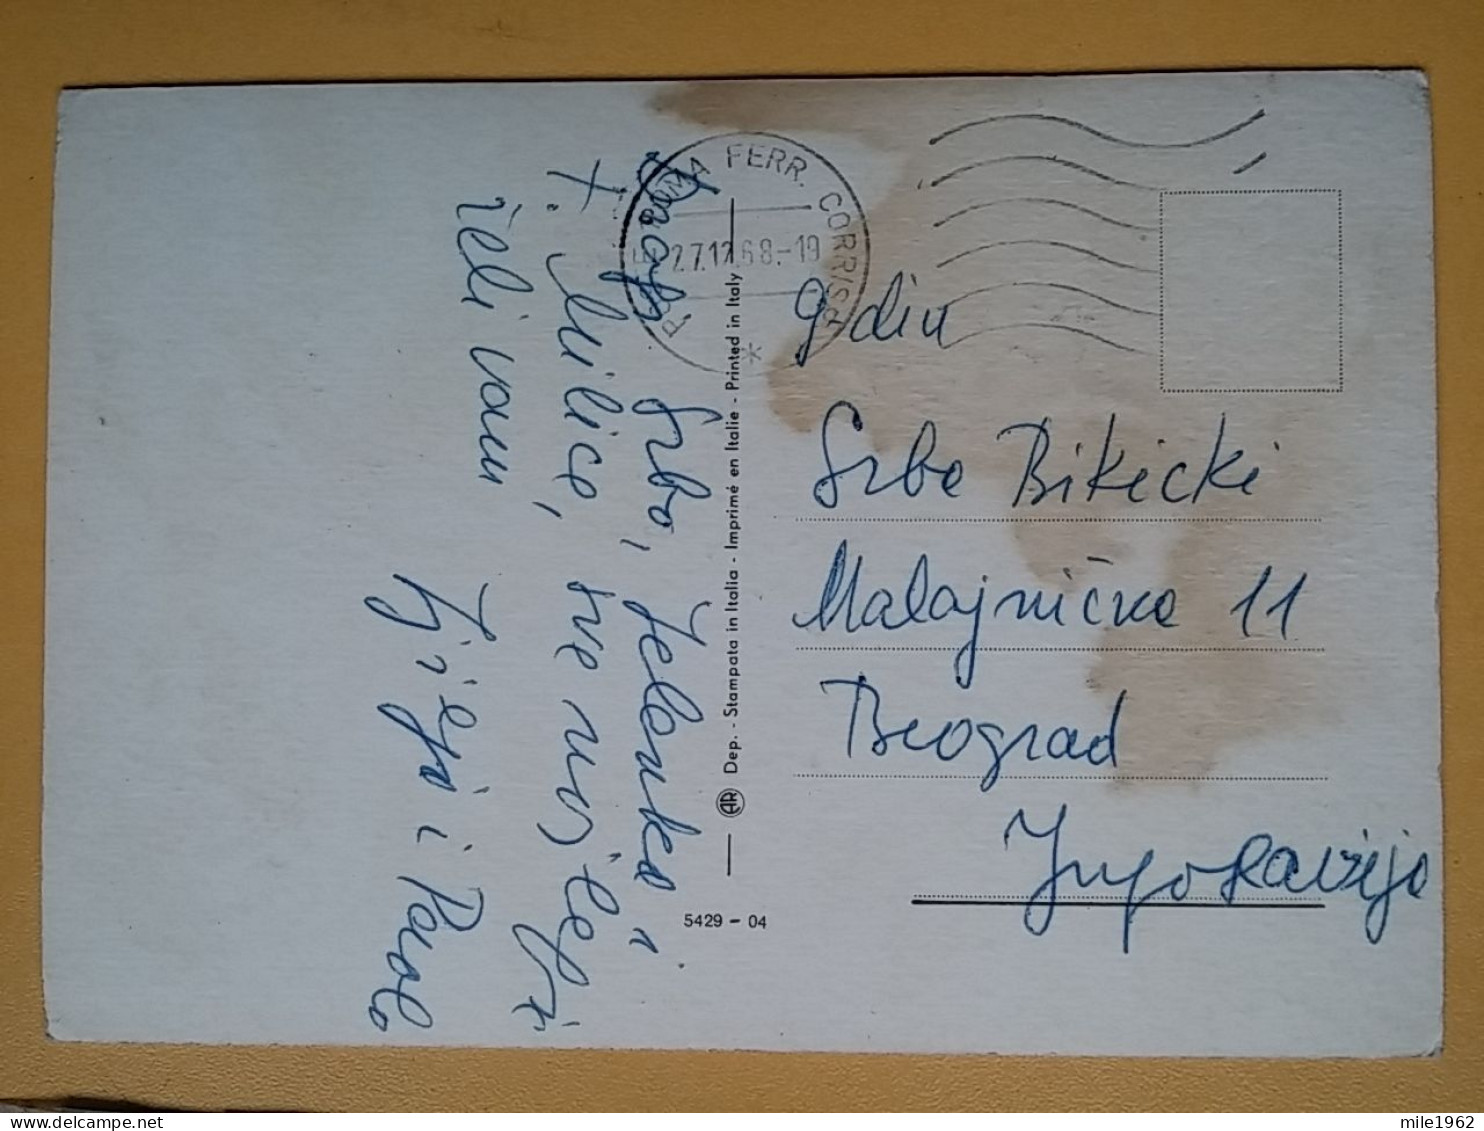 Dragi
Srbo, Jelenka i
Milice, sve najlepše
želi vam
i Paolo
ROMA FERR. CORRISP.
27.12.68.-19
Dep. - Stampata in Italia - Imprimé en Italie - Printed in Italy
5429 - 04
gdin
Srbo Bikicki
Malajnička 11
Beograd
Jugoslavija
mile1962